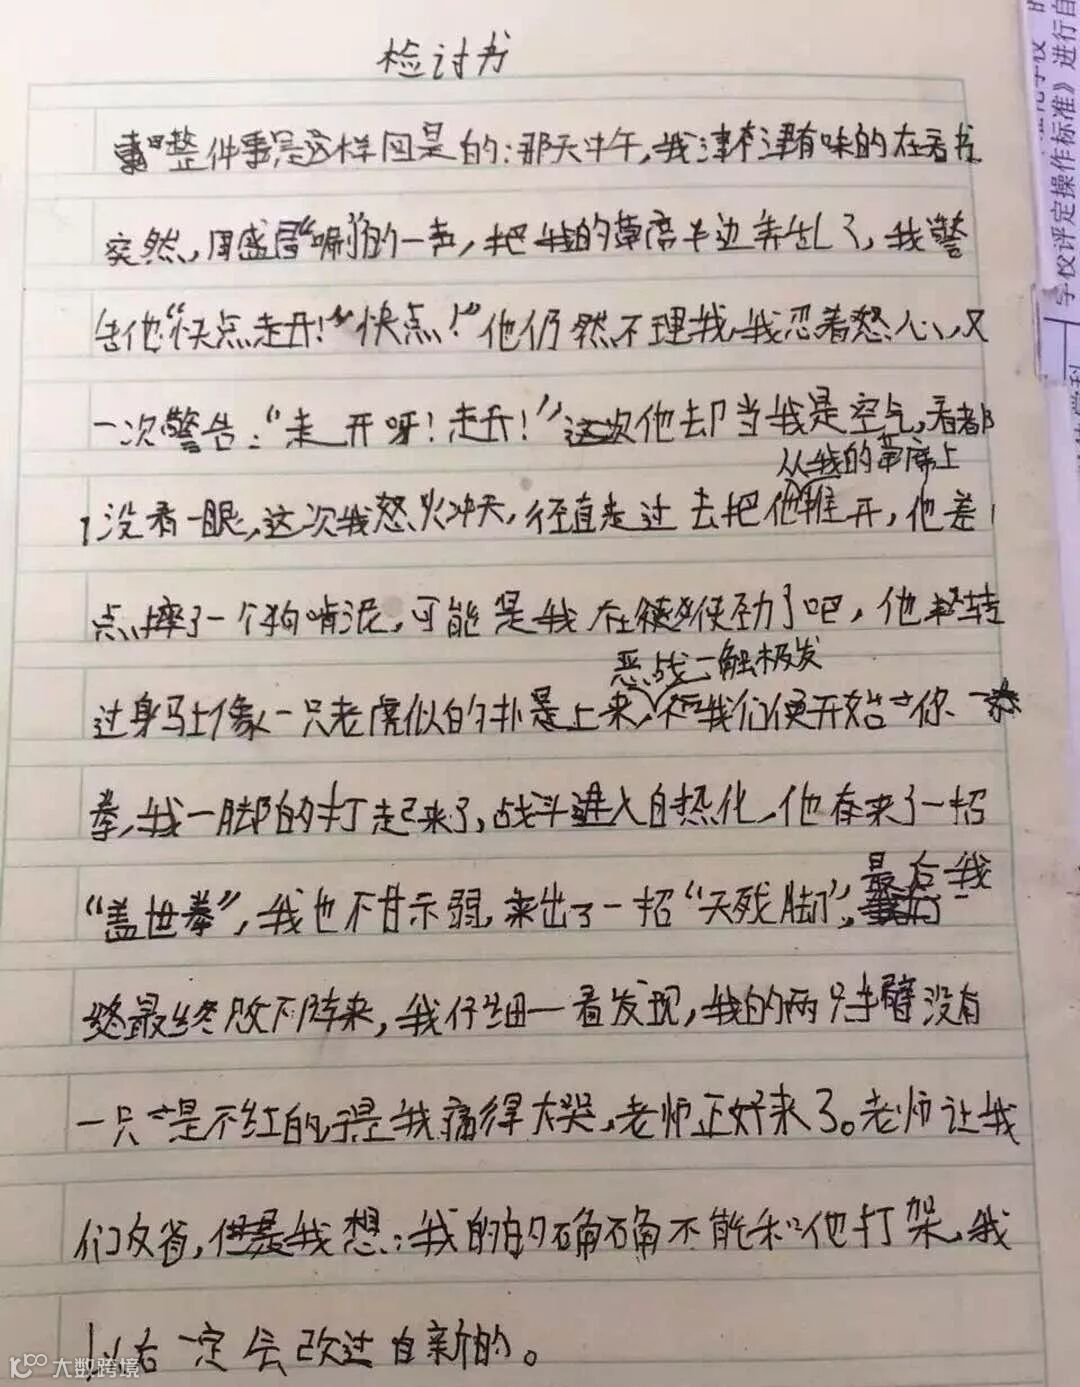 检讨书
整件事是这样的:那天中午,我津津有味的在看书
突然,周盛"唰的一声,把我的草席半边弄乱了,我警
告他"快点走开!""快点!"他仍然不理我,我忍着怒心,又
一次警告:"走开呀!走开!"这次他却当我是空气,看都
从我的草席上
没看一眼,这次我怒火冲天,径直走过去把他推开,他差
点摔了一个狗啃泥,可能是我太使劲了吧,他转
恶战一触极发
过身马上像一只老虎似的扑上来,我们便开始你一
拳,我一脚的打起来了,战斗进入白热化,他存来了一招
最后我
"盖世拳",我也不甘示弱,来出了一招"天残脚",
最终败下阵来,我仔细一看发现,我的两只手臂没有
一只是不红的于是我痛得大哭,老师正好来了。老师让我
们反省,我想:我的的确确不能和他打架,我
以后一定会改过自新的。
学校评定操作标准》进行自
大数跨境